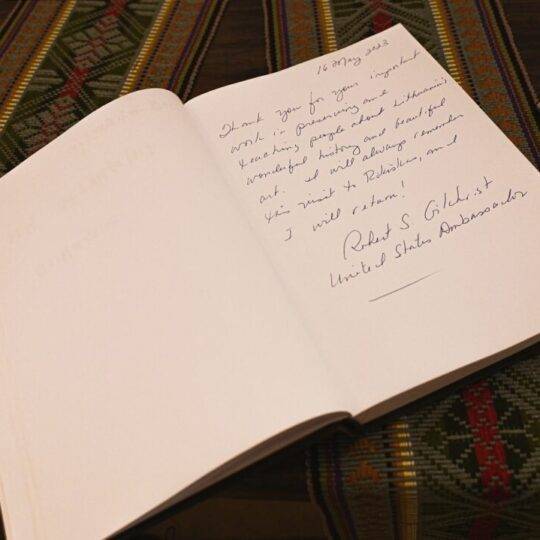 16 May 2023
Thank you for your important
work in preserving and
teaching people about Lithuania's
wonderful history and beautiful
art. I will always remember
this visit to Rokiskis, and
I will return!
Robert S. Gilchrist
United States Ambassador